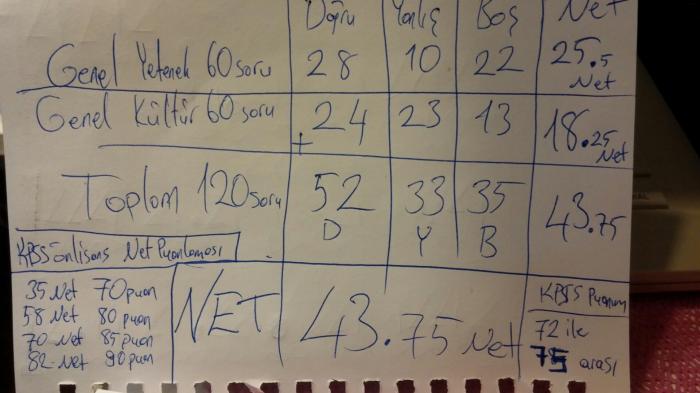 Doğru Yanlış Boş Net
Genel Yetenek 60 soru 28 10 22 25.5 Net
Genel Kültür 60 soru + 24 23 13 18.25 Net
Toplam 120 soru 52 33 35 43.75
D Y B
KPSS Önlisans Net Puanlaması
35 Net 70 puan
58 Net 80 puan
70 Net 85 puan
82 Net 90 puan
NET 43.75 Net
KPSS Puanım
72 ile
75 arası